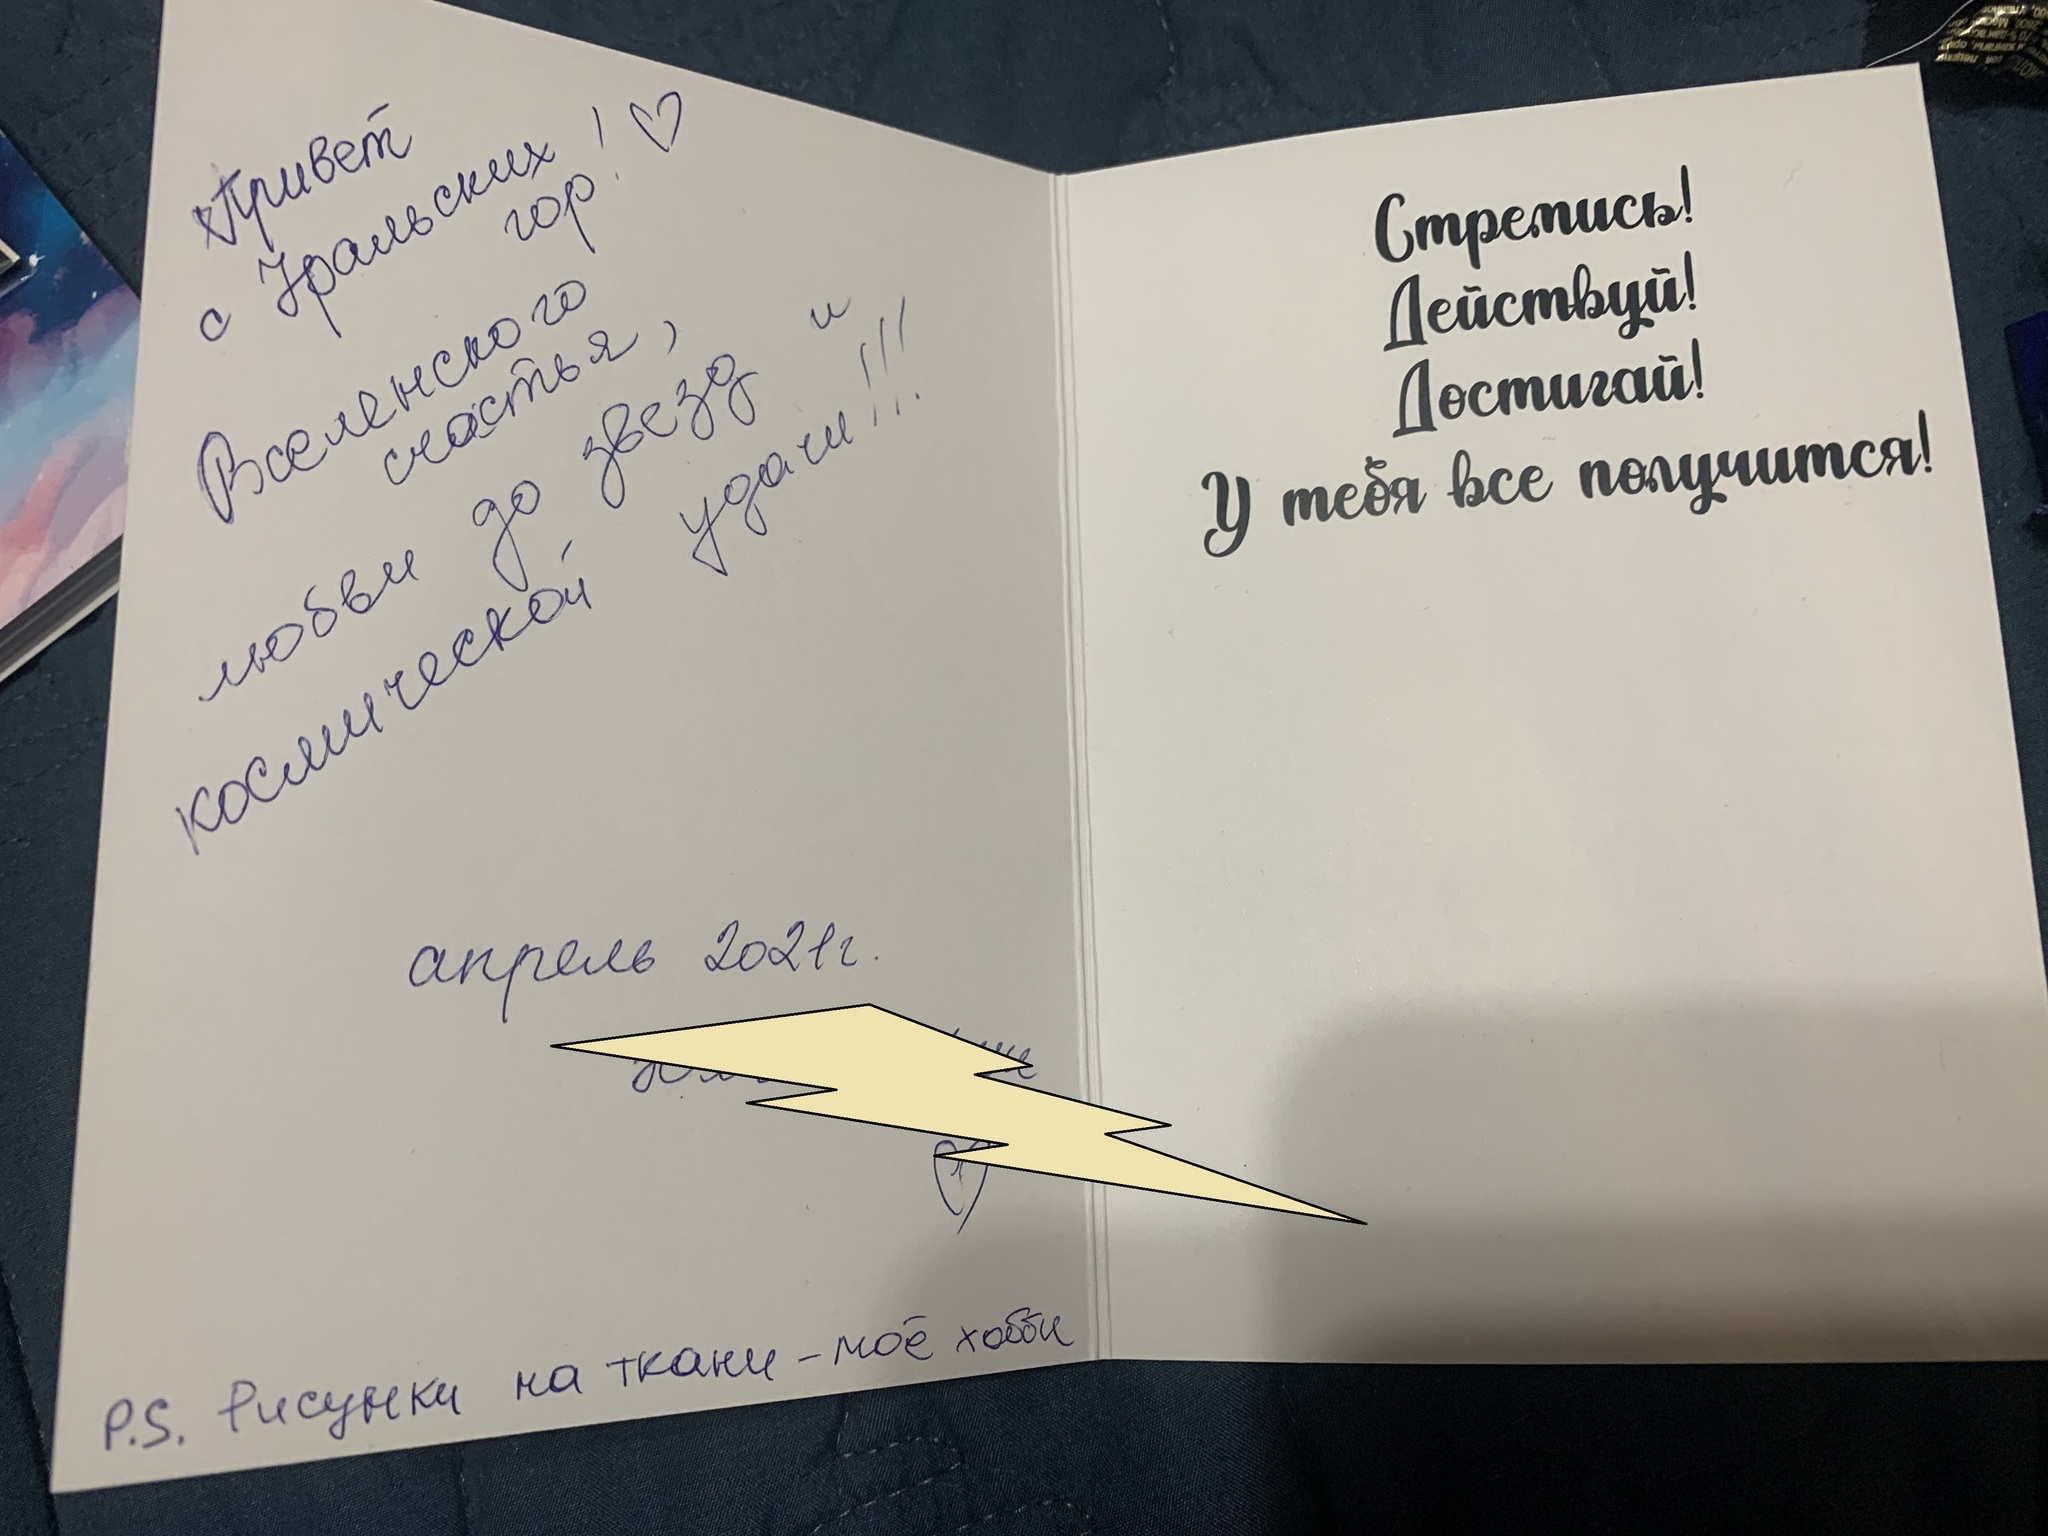 Привет
с Уральских!
гор!
Вселенского
счастья,
любви до звезд и
космической удачи!!!
апрель 2021г.
P.S. Рисунки на ткани - моё хобби
Стремись!
Действуй!
Достигай!
У тебя все получится!